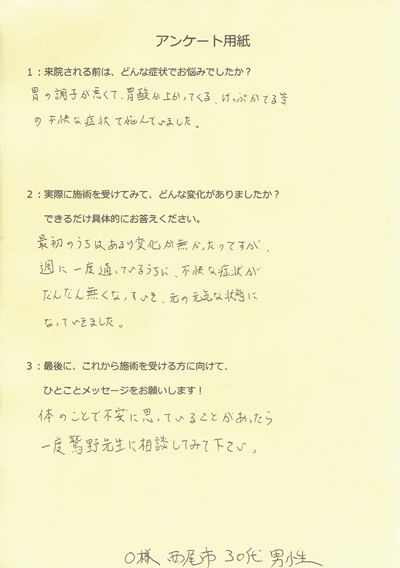 アンケート用紙
1：来院される前は、どんな症状でお悩みでしたか？
胃の調子が悪くて、胃酸が上がってくる、げっぷがでる等
の不快な症状で悩んでいました。
2：実際に施術を受けてみて、どんな変化がありましたか？
できるだけ具体的にお答えください。
最初のうちはあまり変化が無かったのですが、
週に一度通っているうちに、不快な症状が
だんだん無くなっていき、元の元気な状態に
なっていきました。
3：最後に、これから施術を受ける方に向けて、
ひとことメッセージをお願いします！
体のことで不安に思っていることがあったら
一度鷲野先生に相談してみて下さい。
O様 西尾市 30代 男性